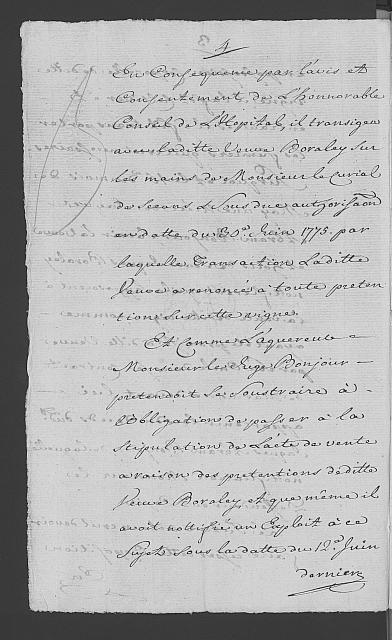 4
En Consequence par l'avis et
Consentement de L'honnorable
Conseil de L'Hopital, il transigea
avec laditte Veuve Boraley sur
les mains de Monsieur le Curial
de SeconS, & Sous due authorisaõn
en datte du 20.e Juin 1775. par
laquelle Transaction Laditte
Veuve a renoncé à toute preten
tions Sur cette vigne.
Et Comme L'aquereute =
Monsieur le Juge Bonjour —
pretendoit Se Soustraire à =
L'obligation de passer à la
Stipulation de L'acte de vente
a raison des pretentions deditte
Veuve Boraley et que même il
avoit nottifié un Exploit à ce
Sujet Sous la datte du 12.e Juin
dernier